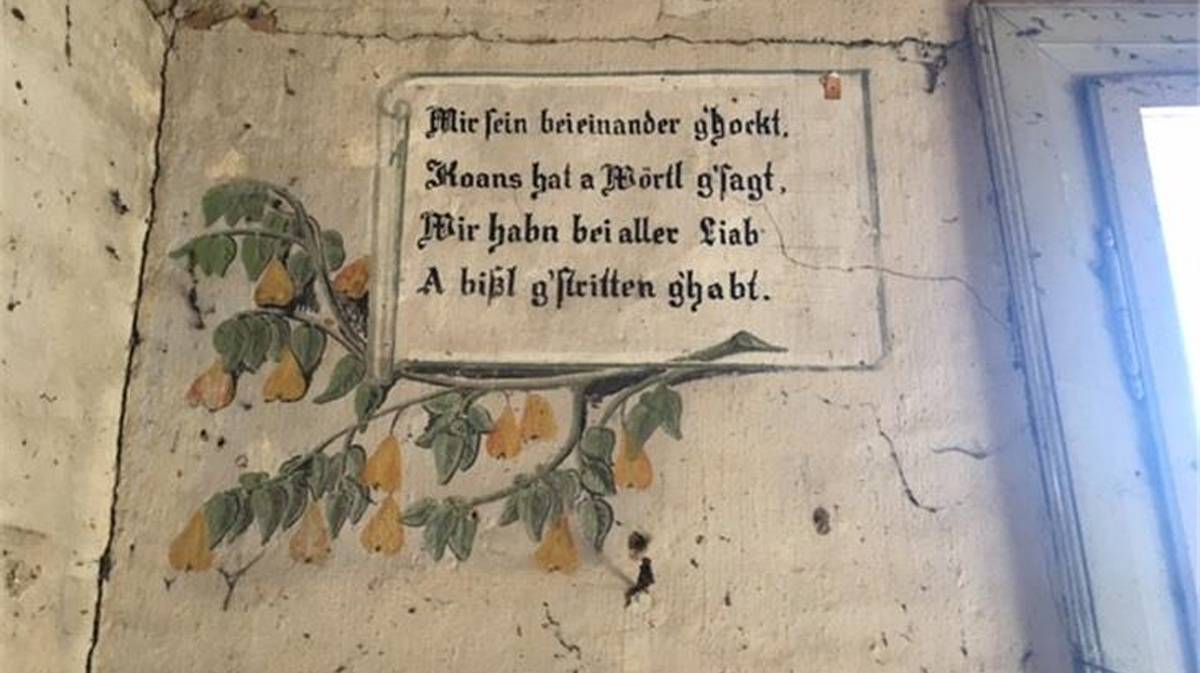 Mir sein beieinander g'hockt,
Koans hat a Wörtl g'sagt,
Mir habn bei aller Liab
A bißl g'stritten g'habt.